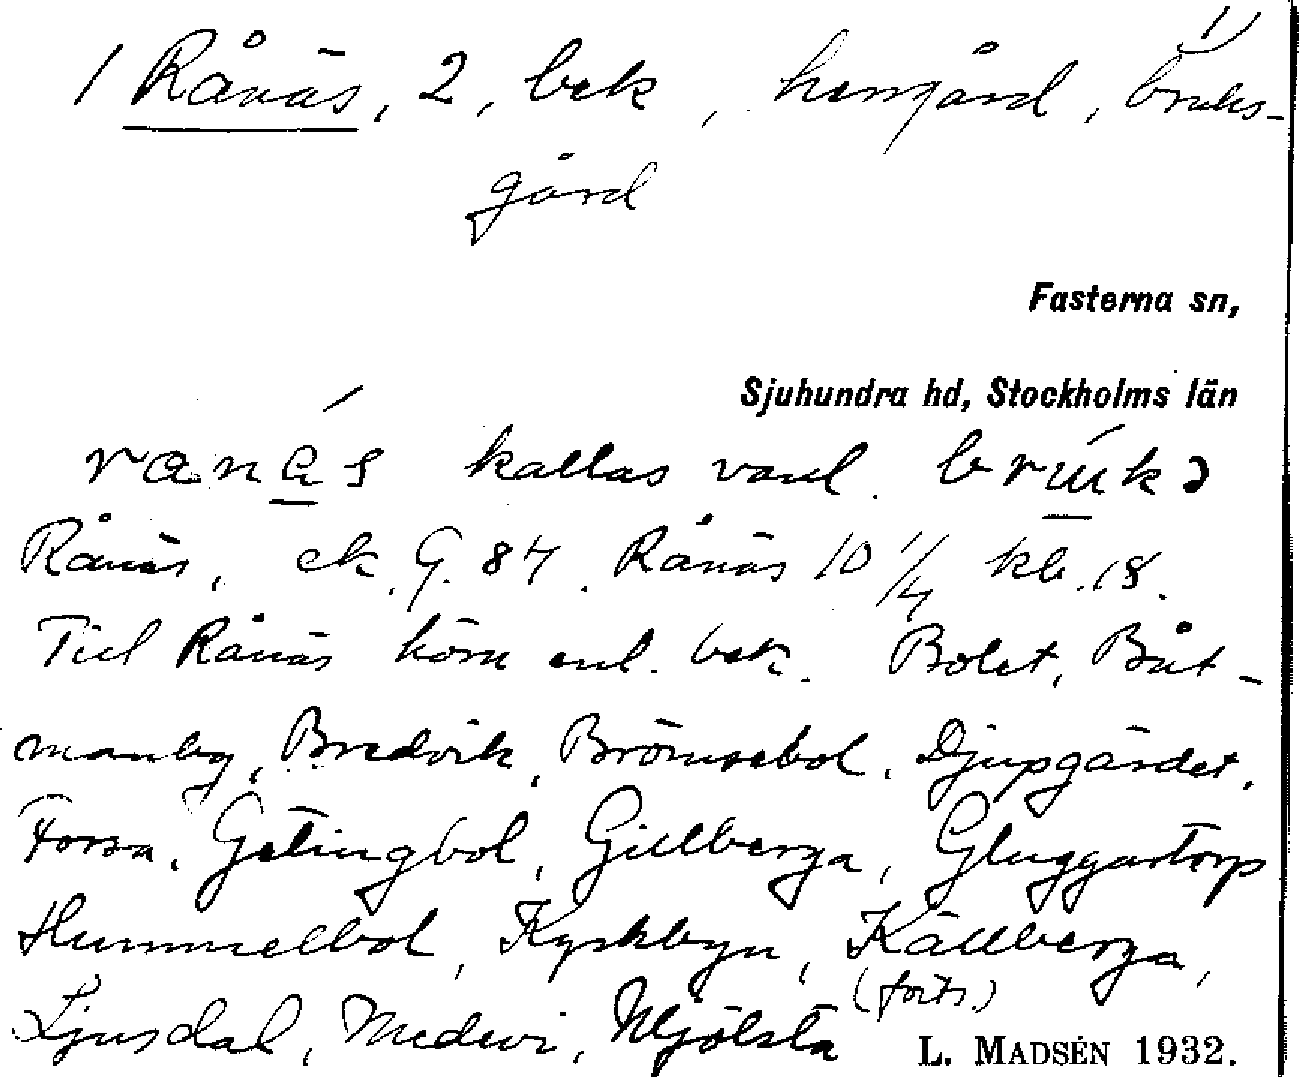 1)
1 Rånäs, 2, bek, herrgård, bruks-
gård
Fasterna sn,
Sjuhundra hd, Stockholms län
ranæs kallas vanl. bruukɔ
Rånäs, ek. G. 87. Rånäs 10 1/4 kb. 18.
Till Rånäs höra enl. bek. Bolet, Båt-
manby, Bredvik, Brömsebol, Djupgärdet,
Forsa, Getingbol, Gillberga, Gluggartorp
Hummelbol, Kyrkbyn, Källberga,
(forts.)
Ljusdal, Medevi, Mjölsta
L. MADSÉN 1932.